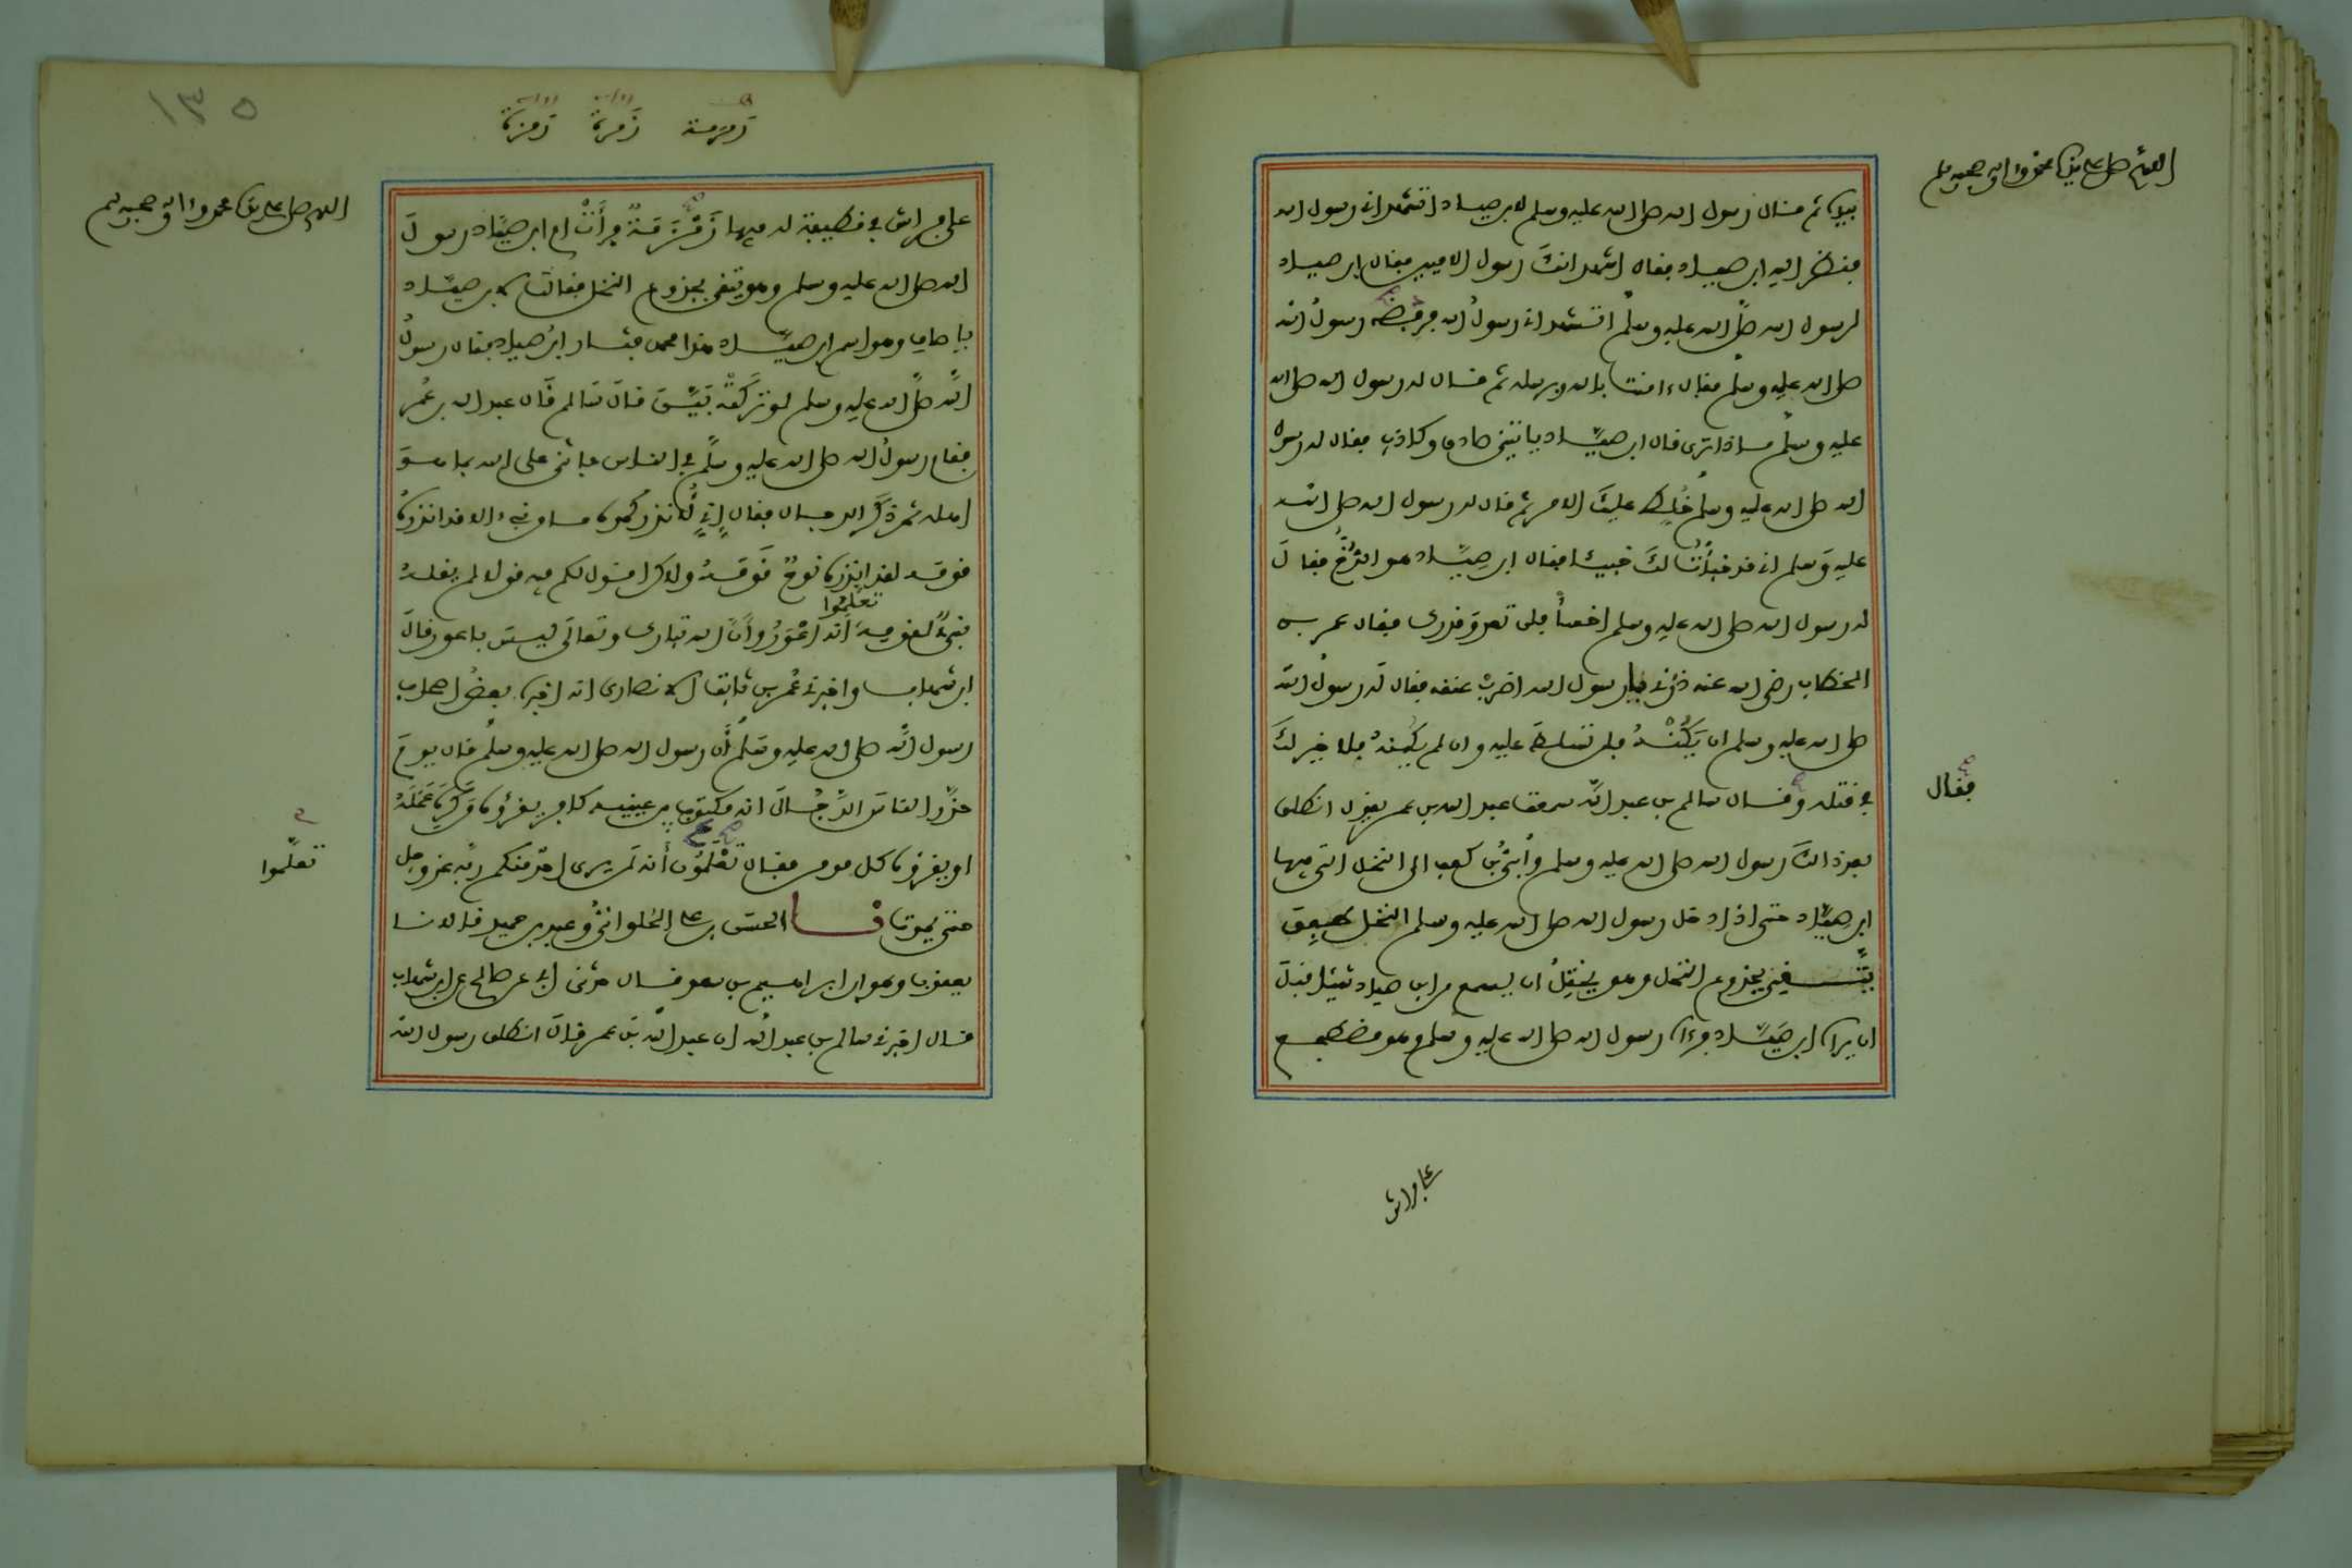 اللهم صل على سيدنا محمد واله وصحبه وسلم
بيده ثم قال رسول الله صلى الله عليه وسلم لابن صياد اتشهد اني رسول الله
فنظر اليه ابن صياد فقال اشهد انك رسول الاميين فقال ابن صياد
لرسول الله صلى الله عليه وسلم اتشهد اني رسول الله فرفضه رسول الله
صلى الله عليه وسلم فقال ءامنت بالله وبرسله ثم قال له رسول الله صلى الله
عليه وسلم ماذا ترى قال ابن صياد ياتيني صادق وكاذب فقال له رسول
الله صلى الله عليه وسلم خُلِط عليك الامر ثم قال له رسول الله صلى الله
عليه وسلم اني قد خبأت لك خبيئا فقال ابن صياد هو الدُّخُّ فقال
له رسول الله صلى الله عليه وسلم اخسأ فلن تعدو قدرك فقال عمر بن
الخطاب رضي الله عنه ذرني يا رسول الله اضرب عنقه فقال له رسول الله
صلى الله عليه وسلم ان يَكُنْهُ فلن تسلط عليه وان لم يكنه فلا خير لك
في قتله وقال سالم بن عبد الله سمعت عبد الله بن عمر يقول انطلق
فقال
بعد ذالك رسول الله صلى الله عليه وسلم وأبيّ بن كعب الى النخل التي فيها
ابن صياد حتى اذا دخل رسول الله صلى الله عليه وسلم النخل طفق
يتقي بجذوع النخل وهو يختل ان يسمع من ابن صياد شيئا قبل
ان يراه ابن صياد فرءاه رسول الله صلى الله عليه وسلم وهو مضطجع
على فراش
١٣٥
زمزمة زمرة رمزة
اللهم صل على سيدنا محمد واله وصحبه وسلم
على فراش في قطيفة له فيها زَمْزَمَةٌ فرأَتْ ام ابن صياد رسول
الله صلى الله عليه وسلم وهو يتقي بجذوع النخل فقالت لابن صياد
يا صاف وهو اسم ابن صياد هذا محمد فثار ابن صياد فقال رسول
الله صلى الله عليه وسلم لو تركته بَيَّنَ قال سالم قال عبد الله بن عمر
فقام رسول الله صلى الله عليه وسلم في الناس فاثنى على الله بما هو
اهله ثم ذكر الدجال فقال إني لأنذركموه ما من نبيء الا قد انذره
قومه لقد انذره نوح قومه ولاكن اقول لكم فيه قولا لم يقله
نبي لقومه تعلموا أنه أعور وأن الله تبارك وتعالى ليس باعور قال
ابن شهاب واخبرني عمر بن ثابت الانصاري انه اخبره بعض اصحاب
رسول الله صلى الله عليه وسلم أن رسول الله صلى الله عليه وسلم قال يوم
حذر الناس الدجال انه مكتوب بين عينيه كافر يقرؤه من كره عمله
او يقرؤه كل مومن فقال تعلموا أنه لن يرى احد منكم ربه عز وجل
تعلّموا
حتى يموت نا الحسن بن علي الحلواني وعبد بن حميد قالا نا
يعقوب وهو ابن ابراهيم بن سعد قال حدثني ابي عن صالح عن ابن شهاب
قال اخبرني سالم بن عبد الله ان عبد الله بن عمر قال انطلق رسول الله